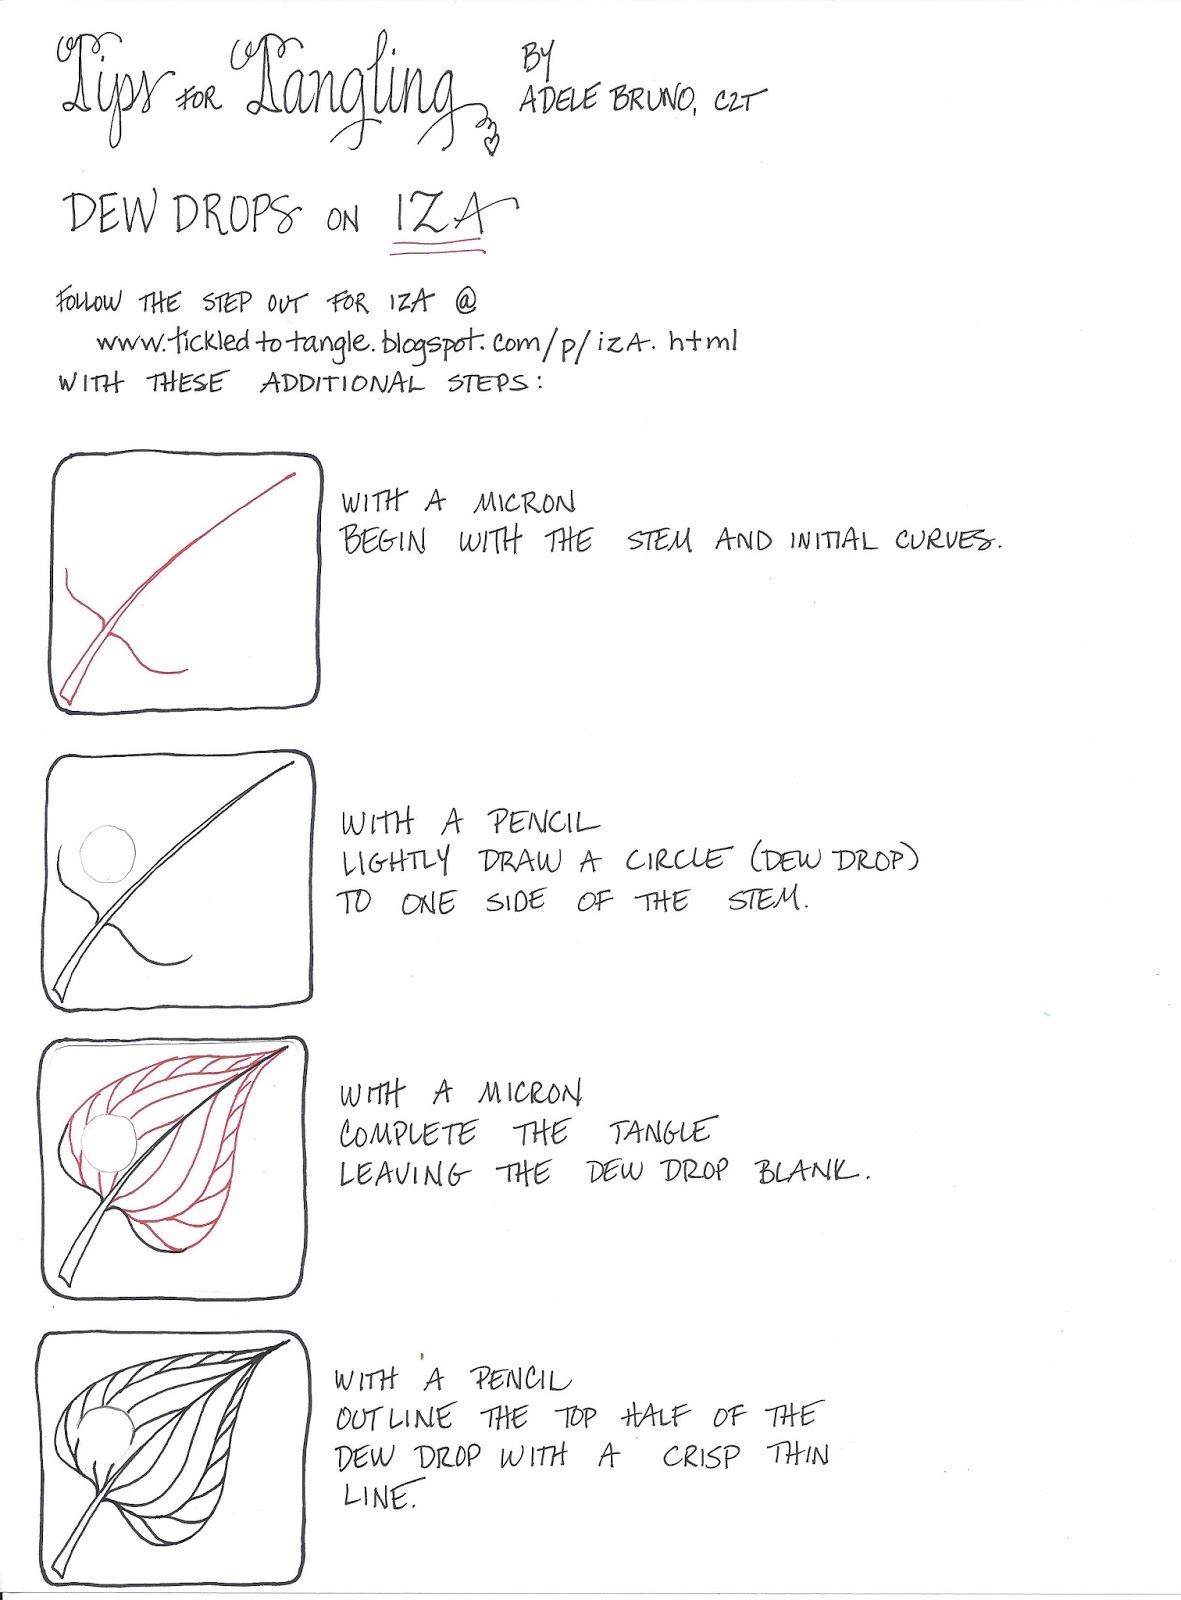 Tips FOR Tangling
BY
ADELE BRUNO, CZT
DEW DROPS ON IZA
FOLLOW THE STEP OUT FOR IZA @
www.tickledtotangle.blogspot.com/p/iza.html
WITH THESE ADDITIONAL STEPS:
WITH A MICRON
BEGIN WITH THE STEM AND INITIAL CURVES.
WITH A PENCIL
LIGHTLY DRAW A CIRCLE (DEW DROP)
TO ONE SIDE OF THE STEM.
WITH A MICRON
COMPLETE THE TANGLE
LEAVING THE DEW DROP BLANK.
WITH A PENCIL
OUTLINE THE TOP HALF OF THE
DEW DROP WITH A CRISP THIN
LINE.